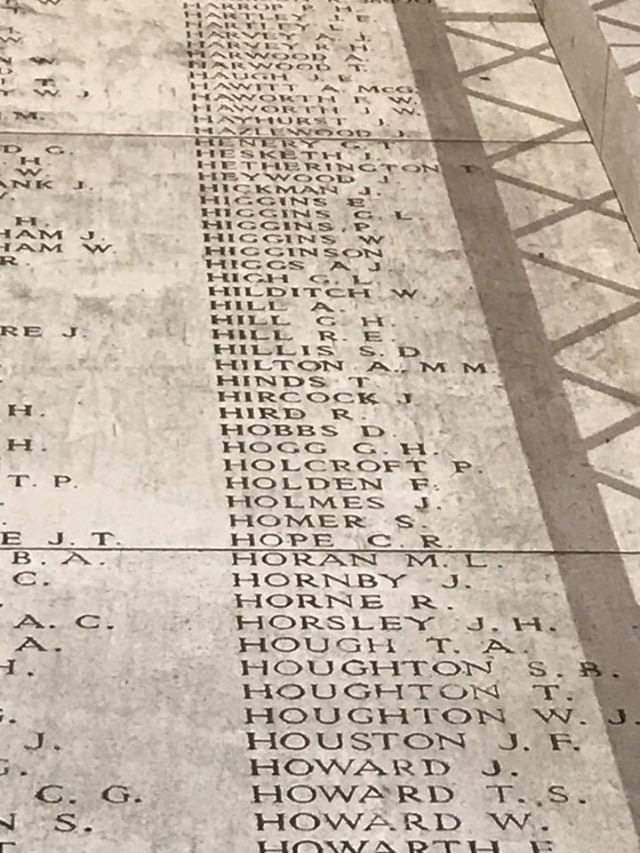 HARTLEY J. E.
HARTLEY L.
HARVEY A.
HARVEY R. H.
HARWOOD A.
HARWOOD T.
HAUGH J. E.
HAWITT A. McG.
HAWORTH F. W.
HAWORTH J. W.
HAYHURST J.
HAZLEWOOD J.
HENERY G. T.
HESKETH J.
HETHERINGTON T.
HEYWOOD J.
HICKMAN J.
HIGGINS E.
HIGGINS G. L.
HIGGINS P.
HIGGINS W.
HIGGINSON
HIGGS A. J.
HIGH G. L.
HILDITCH W.
HILL A.
HILL G. H.
HILL R. E.
HILLIS S. D.
HILTON A. M M.
HINDS T.
HIRCOCK J.
HIRD R.
HOBBS D.
HOGG G. H.
HOLCROFT P.
HOLDEN F.
HOLMES J.
HOMER S.
HOPE C. R.
HORAN M. L.
HORNBY J.
HORNE R.
HORSLEY J. H.
HOUGH T. A.
HOUGHTON S. B.
HOUGHTON T.
HOUGHTON W. J.
HOUSTON J. F.
HOWARD J.
HOWARD T. S.
HOWARD W.
HOWARTH F.
W. J.
M.
D G.
H.
W.
ANK J.
H.
HAM J.
HAM W.
R.
RE J.
H.
H.
T. P.
E J. T.
B. A.
C.
A. C.
A.
H.
G.
J.
G.
C. G.
N S.